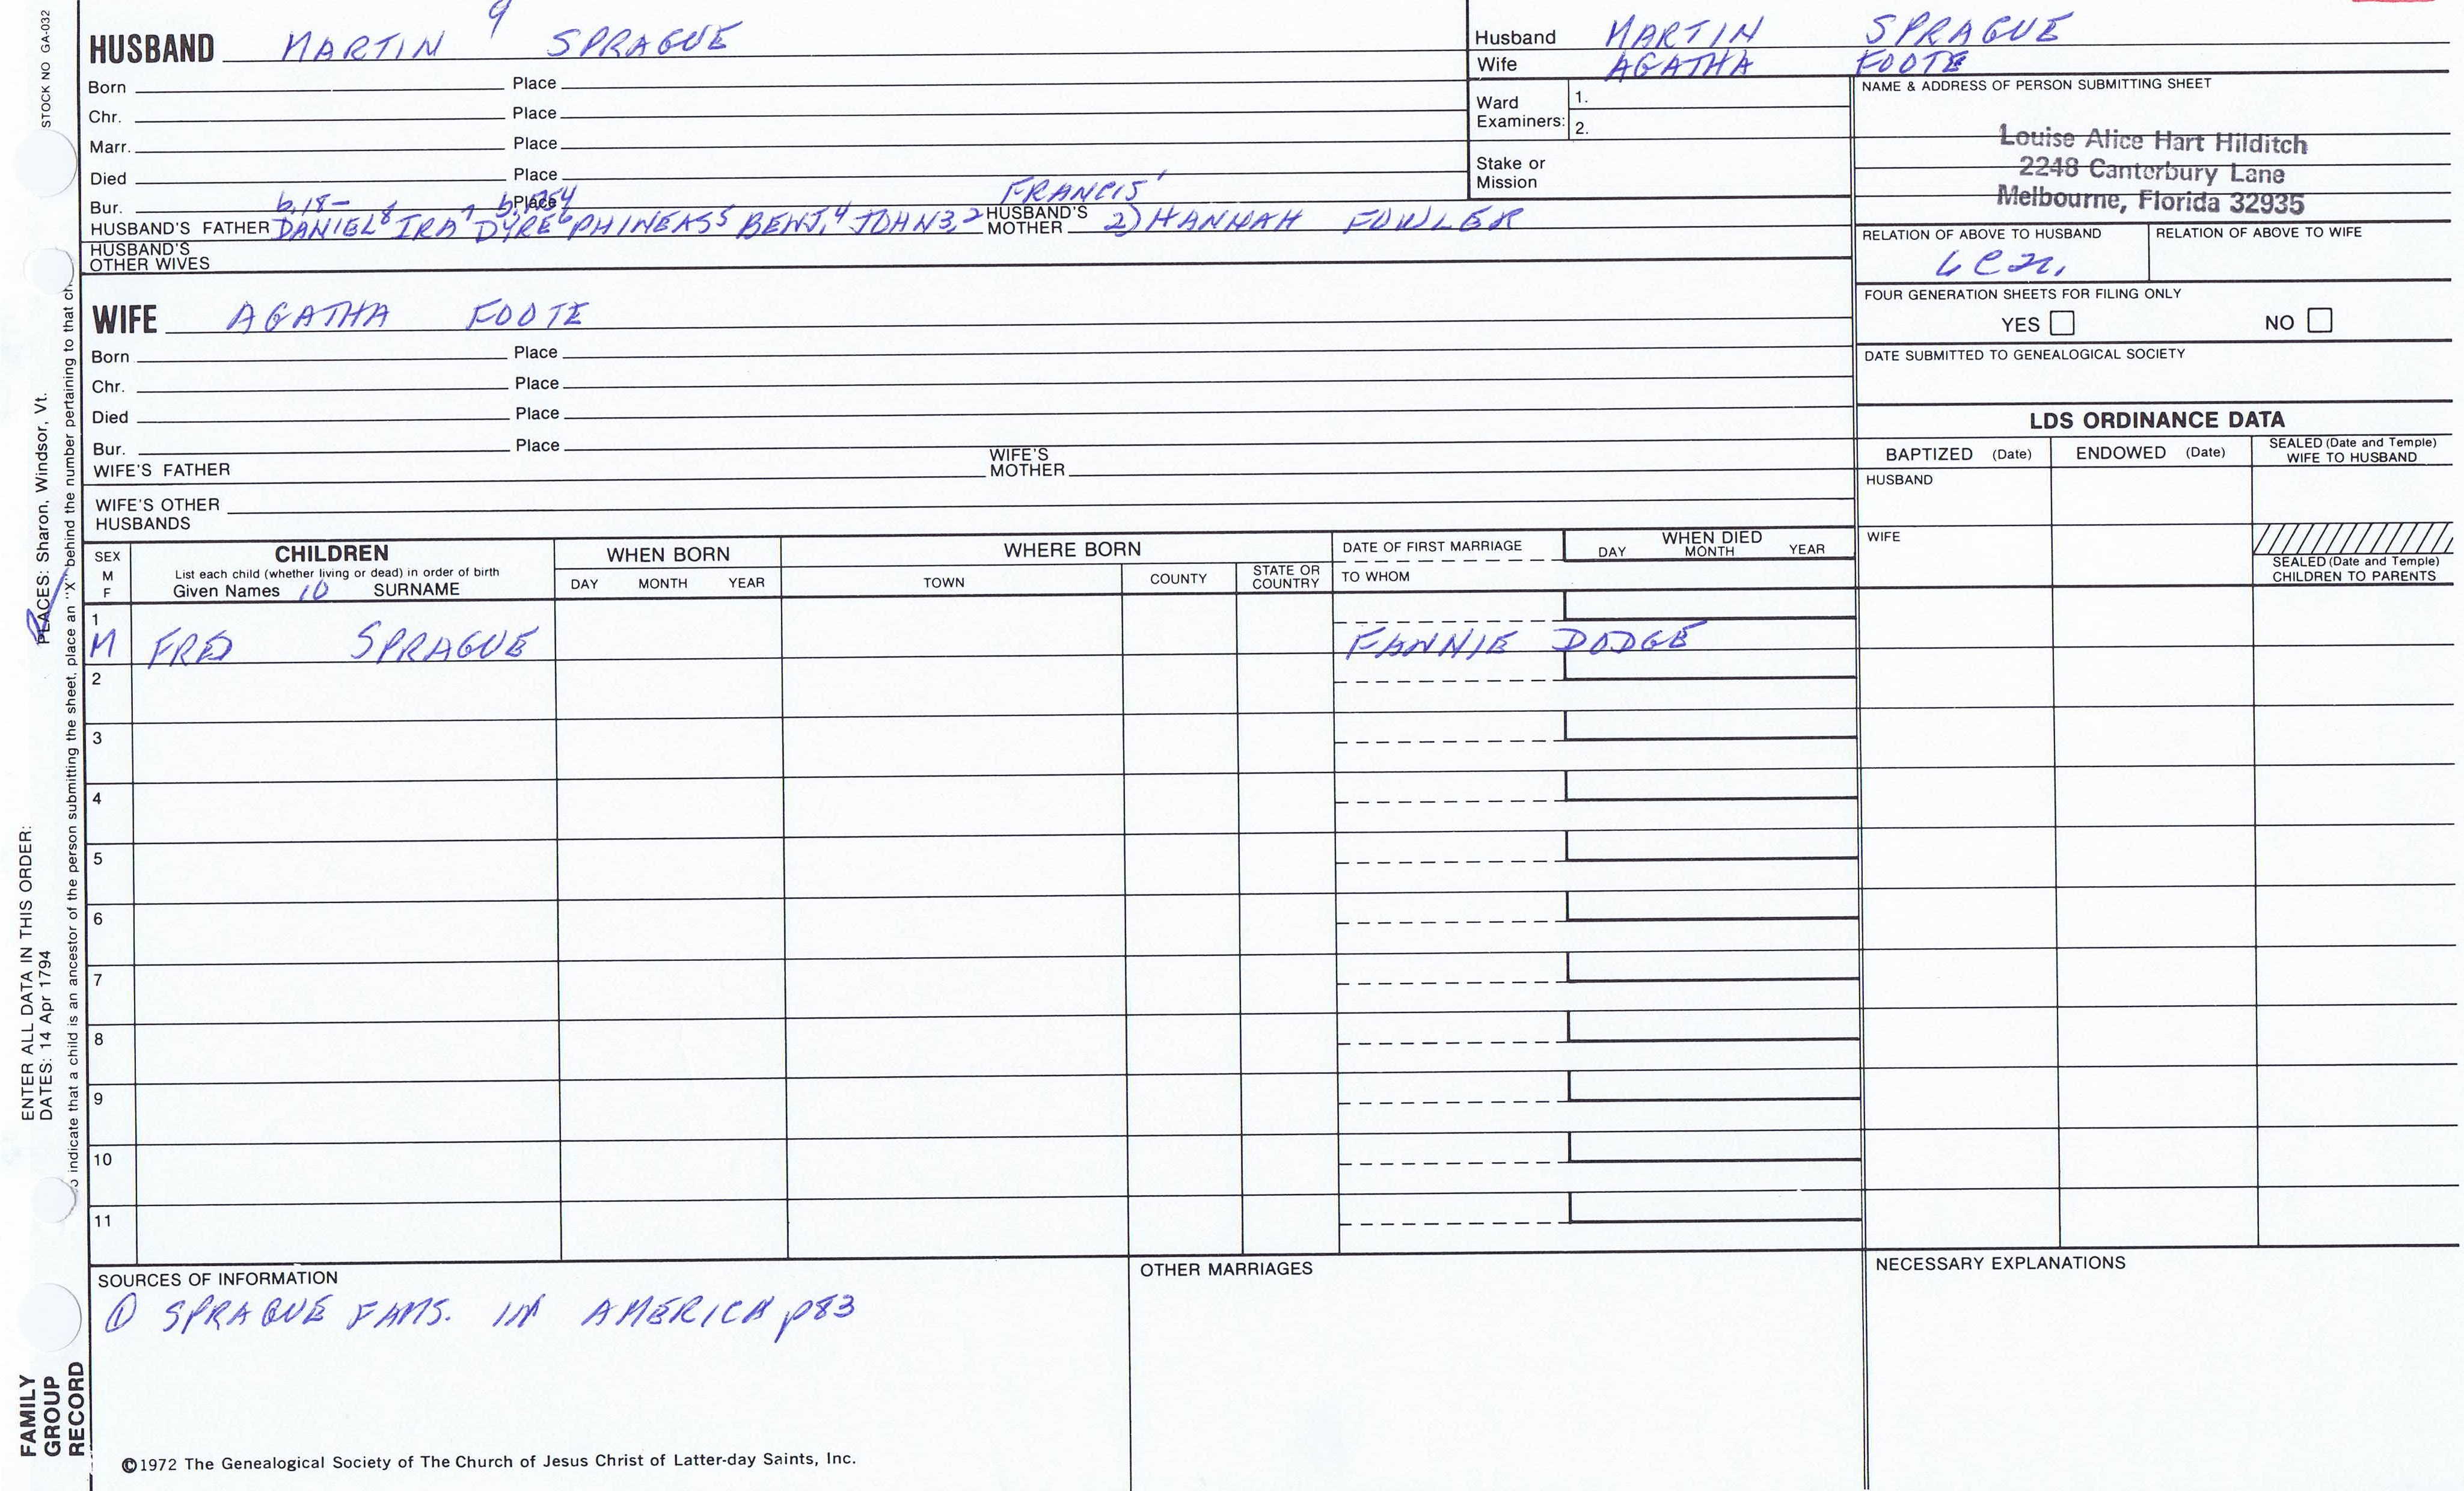 STOCK NO GA-032
HUSBAND MARTIN 9 SPRAGUE
Born Place
Chr. Place
Marr. Place
Died Place
Bur. b,18- Place FRANCIS 1
HUSBAND'S FATHER DANIEL 8 IRA 7 DYRE 6 PHINEAS 5 BENJ, 4 JOHN 3, 2 HUSBAND'S MOTHER 2) HANNAH FOWLER
HUSBAND'S OTHER WIVES
WIFE AGATHA FOOTE
Born Place
Chr. Place
Died Place
Bur. Place
WIFE'S FATHER WIFE'S MOTHER
WIFE'S OTHER HUSBANDS
Husband MARTIN SPRAGUE
Wife AGATHA FOOTE
Ward Examiners: 1.
2.
Stake or Mission
NAME & ADDRESS OF PERSON SUBMITTING SHEET
Louise Alice Hart Hilditch
2248 Canterbury Lane
Melbourne, Florida 32935
RELATION OF ABOVE TO HUSBAND RELATION OF ABOVE TO WIFE
FOUR GENERATION SHEETS FOR FILING ONLY
YES NO
DATE SUBMITTED TO GENEALOGICAL SOCIETY
LDS ORDINANCE DATA
BAPTIZED (Date) ENDOWED (Date) SEALED (Date and Temple) WIFE TO HUSBAND
HUSBAND
WIFE
SEALED (Date and Temple) CHILDREN TO PARENTS
SEX M F
CHILDREN
List each child (whether living or dead) in order of birth
Given Names 10 SURNAME
WHEN BORN
DAY MONTH YEAR
WHERE BORN
TOWN COUNTY STATE OR COUNTRY
DATE OF FIRST MARRIAGE
TO WHOM
WHEN DIED
DAY MONTH YEAR
1
M FRED SPRAGUE FANNIE DODGE
2
3
4
5
6
7
8
9
10
11
SOURCES OF INFORMATION
① SPRAGUE FAMS. IN AMERICA p83
OTHER MARRIAGES
NECESSARY EXPLANATIONS
©1972 The Genealogical Society of The Church of Jesus Christ of Latter-day Saints, Inc.
ENTER ALL DATA IN THIS ORDER:
DATES: 14 Apr 1794 PLACES: Sharon, Windsor, Vt.
indicate that a child is an ancestor of the person submitting the sheet, place an "X" behind the number pertaining to that ch
FAMILY
GROUP
RECORD